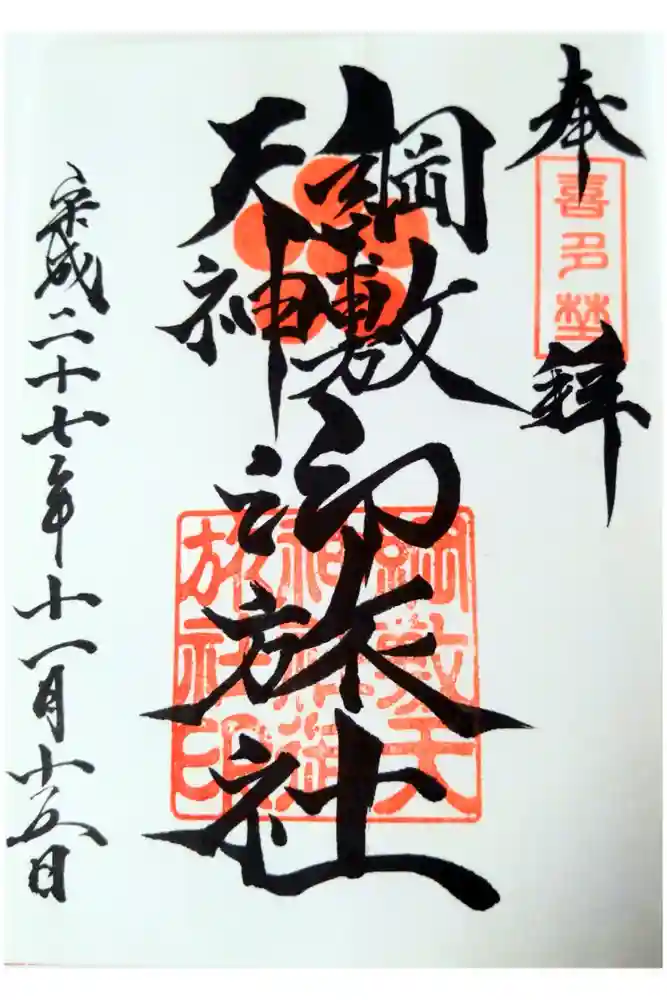 奉拝
喜多埜
綱敷
天神
御旅社
綱敷天
神社御
旅社印
平成二十七年十一月十五日